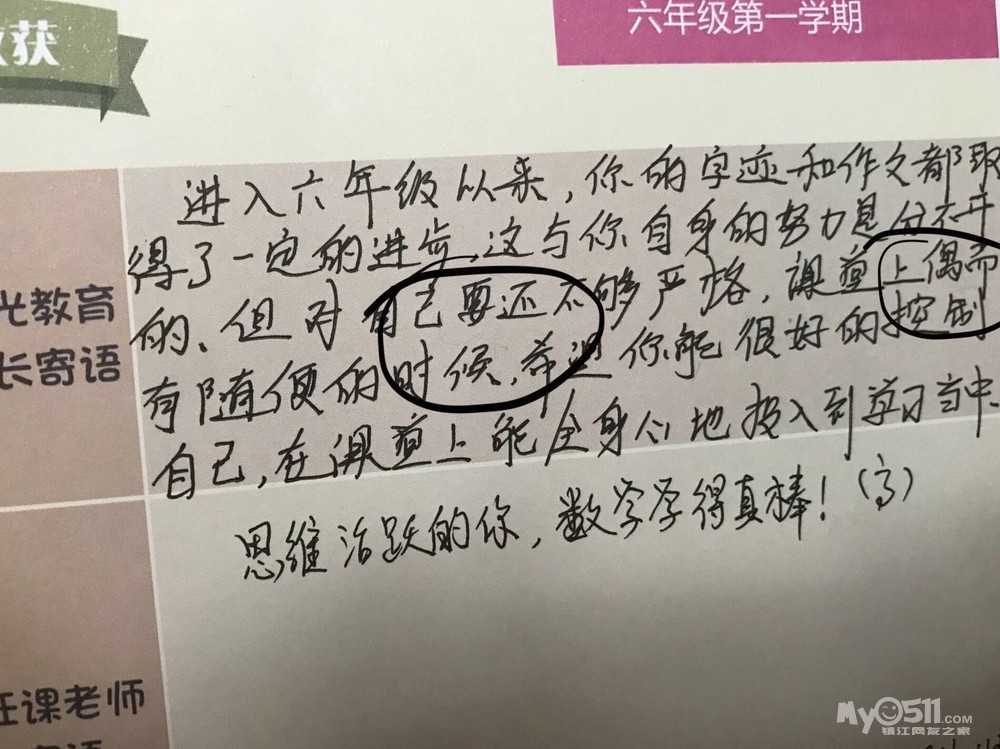 获
六年级第一学期
进入六年级以来，你的字迹和作文都取
得了一定的进步，这与你自身的努力是分不开
的、但对自己要还不够严格，课堂上偶而
有随便的时候，希望你能很好的控制
自己，在课堂上能全身心地投入到学习当中。
光教育
长寄语
思维活跃的你，数学学得真棒！（高）
任课老师
My0511.com
镇江网友之家